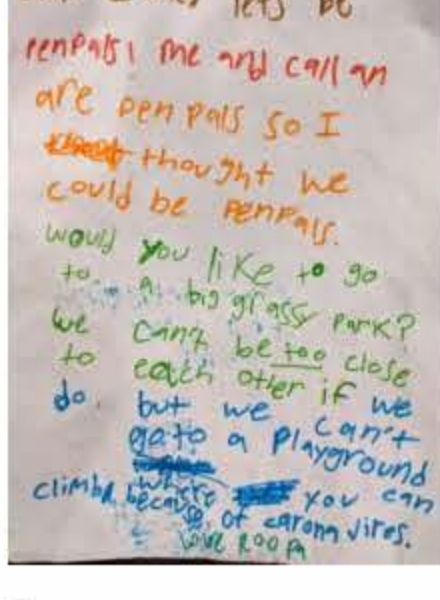 lets be
penpals! me and callan
are pen pals so I
thought we
could be penpals.
would you like to go
to a big grassy park?
we can't be too close
to each other if we
do. but we can't
go to a playground
where you can
climb because of carona vires.
love ROOPA